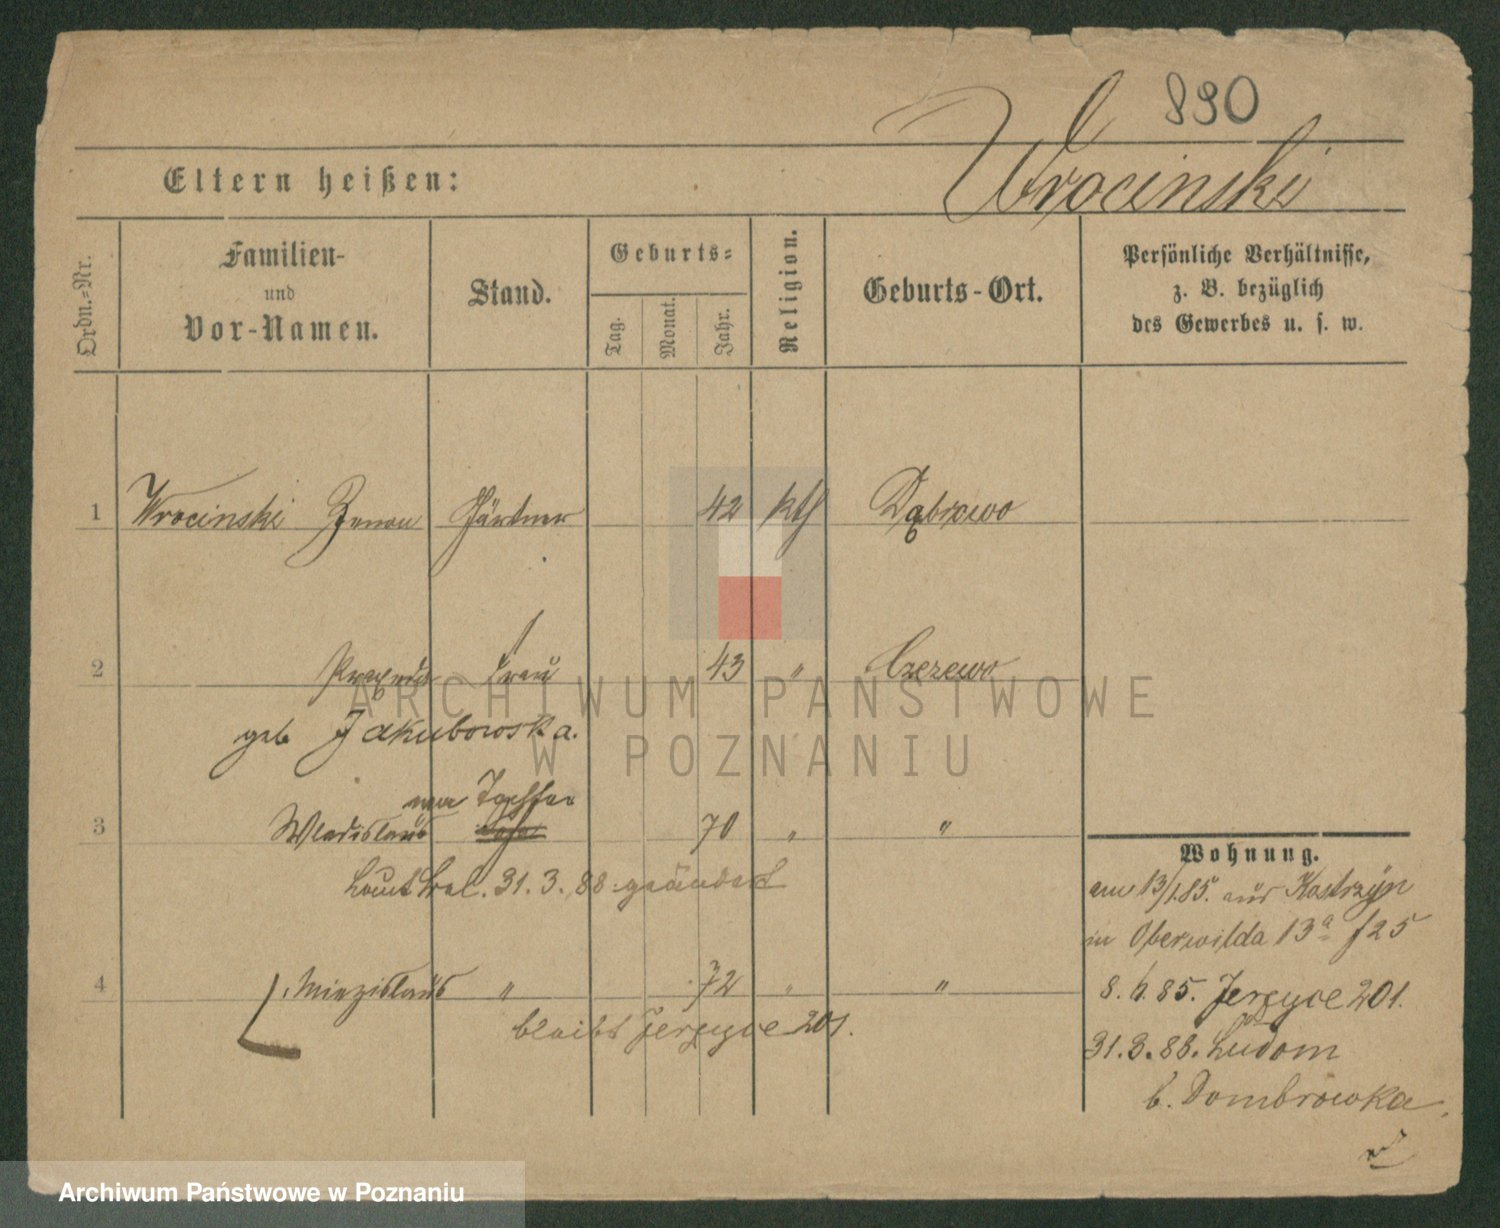 890
Wrocinski
Eltern heißen:
Ordn.-Nr.
Familien-
und
Vor-Namen.
Stand.
Geburts-
Tag.
Monat.
Jahr.
Religion.
Geburts-Ort.
Persönliche Verhältnisse,
z. B. bezüglich
des Gewerbes u. s. w.
1 Wrocinski Zenon Gärtner 42 kth Dąbrowo
2 Praxeda Frau 43 " Czezewo
geb Jakubowska.
3 Wladislaus 70 " "
laut 31.3.88 geändert
4 Miezislaus " 72 " "
bleibt Jerzyce 201.
Wohnung.
am 13/1.85. aus Kostrzyn
in Oberwilda 13a f25
8.6.85. Jerzyce 201.
31.3.88. Ludom
b. Dombrowka
ARCHIWUM PAŃSTWOWE
W POZNANIU
Archiwum Państwowe w Poznaniu